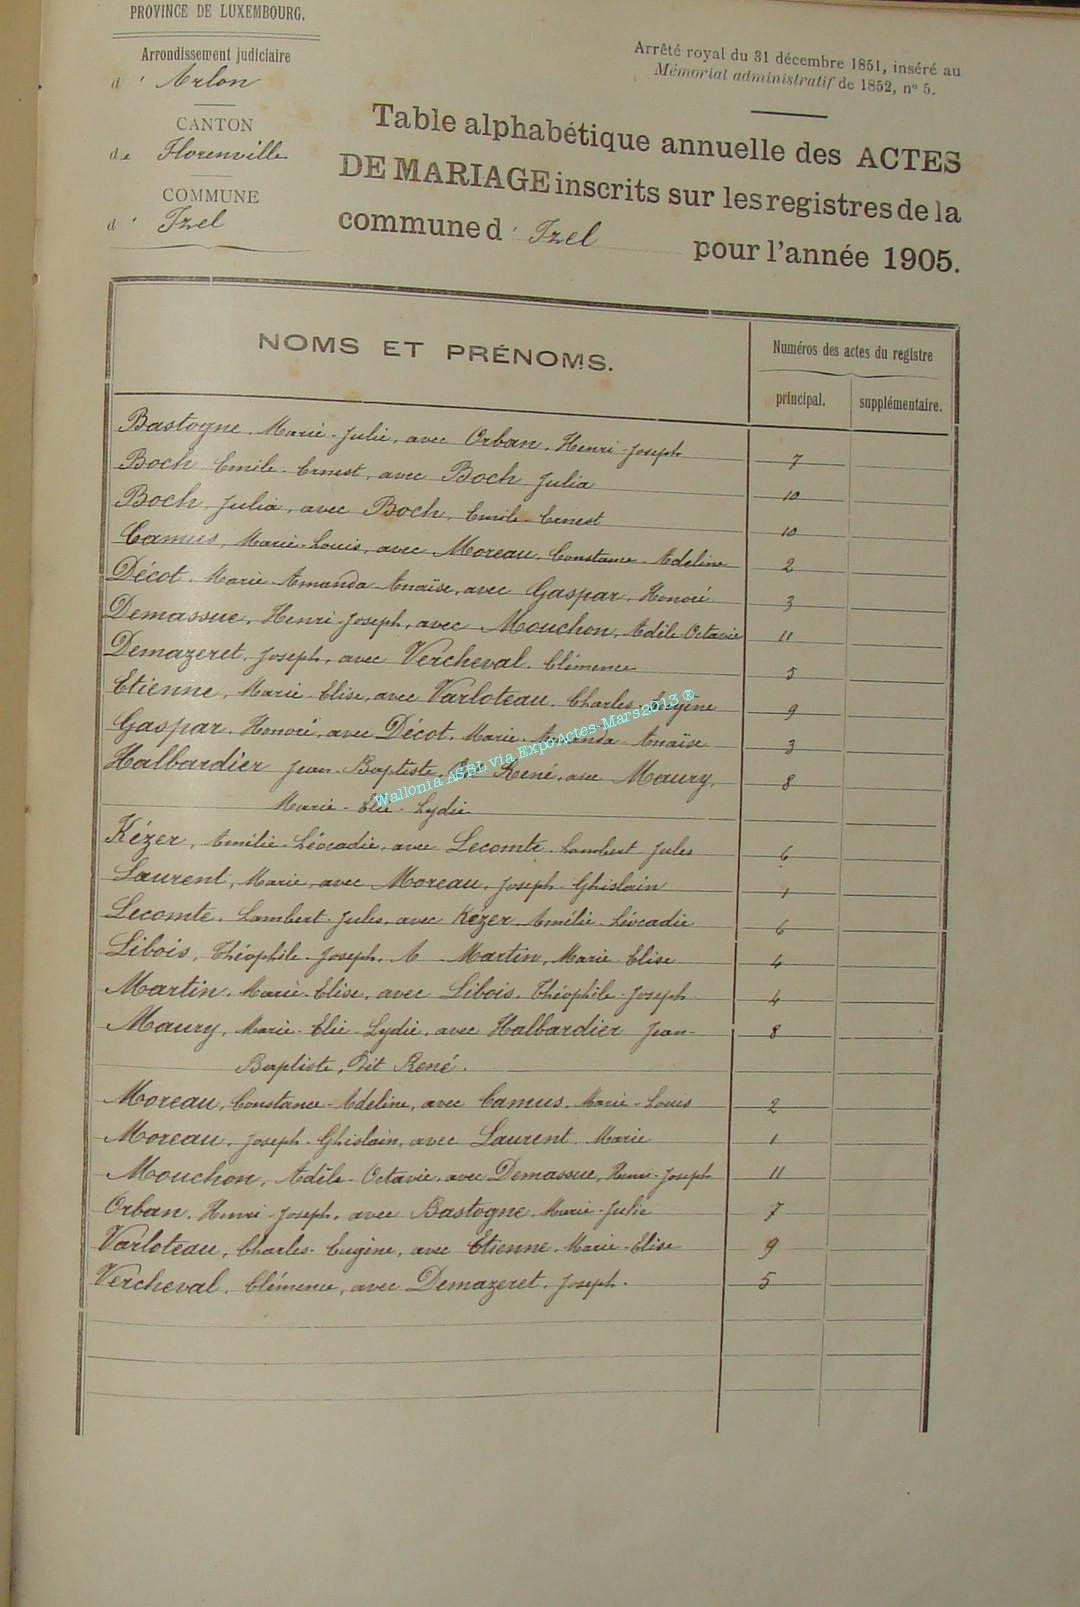 PROVINCE DE LUXEMBOURG.
Arrondissement judiciaire
d' Arlon
CANTON
de Florenville
COMMUNE
d' Izel
Arrêté royal du 31 décembre 1851, inséré au
Mémorial administratif de 1852, n° 5.
Table alphabétique annuelle des ACTES
DE MARIAGE inscrits sur les registres de la
commune d' Izel pour l'année 1905.
NOMS ET PRÉNOMS.
Numéros des actes du registre
principal. supplémentaire.
Bastogne, Marie-Julie, avec Orban, Henri-Joseph 7
Boch Emile-Ernest, avec Boch Julia 10
Boch, Julia, avec Boch, Emile-Ernest 10
Camus, Marie-Louis, avec Moreau, Constance-Adeline 2
Décot, Marie-Amanda-Anaïse, avec Gaspar, Honoré 3
Demassue, Henri-Joseph, avec Mouchon, Adèle-Octavie 11
Demazeret, Joseph, avec Vercheval, Clémence 5
Etienne, Marie-Elise, avec Varloteau, Charles-Eugène 9
Gaspar, Honoré, avec Décot, Marie-Amanda-Anaïse 3
Halbardier Jean-Baptiste, Dit René, avec Maury, 8
Marie-Elie-Lydie
Kézer, Amélie-Léocadie, avec Lecomte, Lambert Jules 6
Laurent, Marie, avec Moreau, Joseph-Ghislain 1
Lecomte, Lambert-Jules, avec Kézer, Amélie-Léocadie 6
Libois, Théophile-Joseph, Martin, Marie-Elise 4
Martin, Marie-Elise, avec Libois, Théophile-Joseph 4
Maury, Marie-Elie-Lydie, avec Halbardier Jean- 8
Baptiste, Dit René.
Moreau, Constance-Adeline, avec Camus, Marie-Louis 2
Moreau, Joseph-Ghislain, avec Laurent, Marie 1
Mouchon, Adèle-Octavie, avec Demassue, Henri-Joseph 11
Orban, Henri-Joseph, avec Bastogne, Marie-Julie 7
Varloteau, Charles-Eugène, avec Etienne, Marie-Elise 9
Vercheval, Clémence, avec Demazeret, Joseph. 5
Wallonia ASBL via ExpoActes-Mars2013 ®